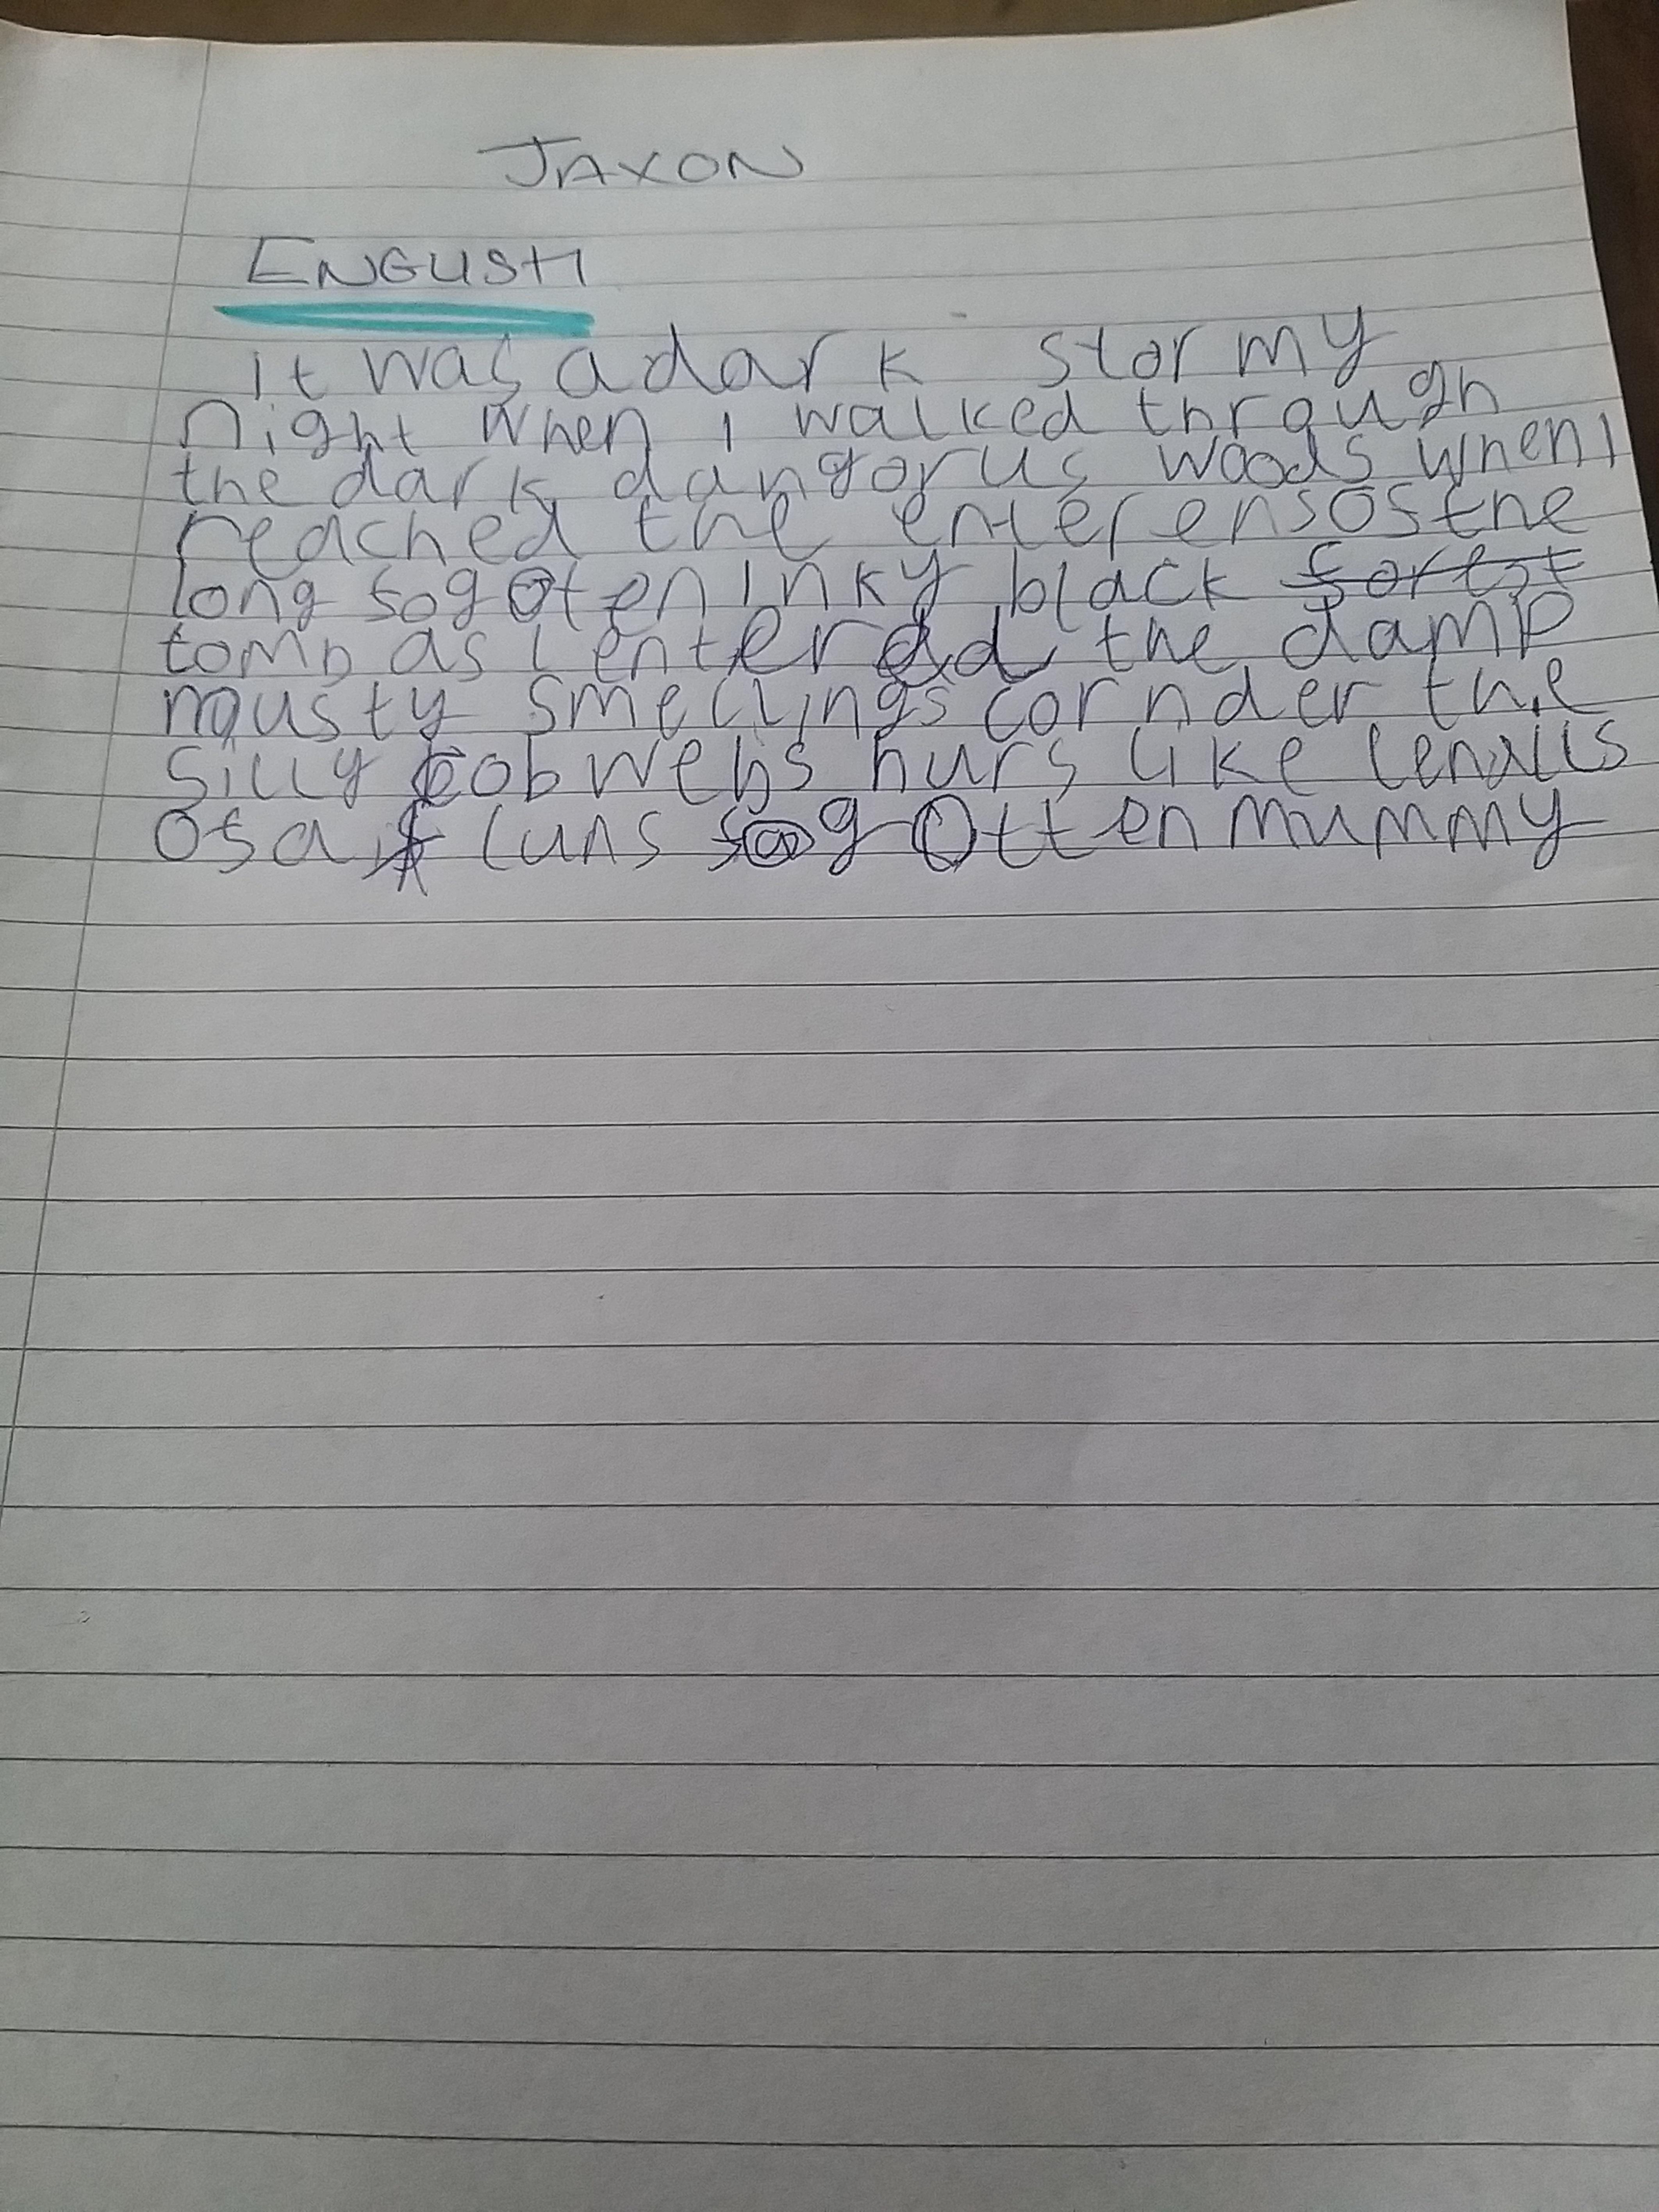 JAXON
ENGLISH
it was a dark stormy
night when i walked through
the dark dangorus woods when i
reached the enterens of the
long fogoten inky black forest
tomb as i enterd the damp
mousty smelling cornder the
silly cobwebs hurs like
of a luns fogotten mummy